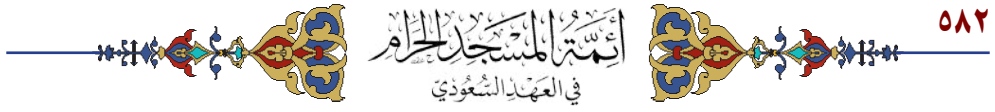 ٥٨٢
أئمة المسجد الحرام
في العهد السعودي